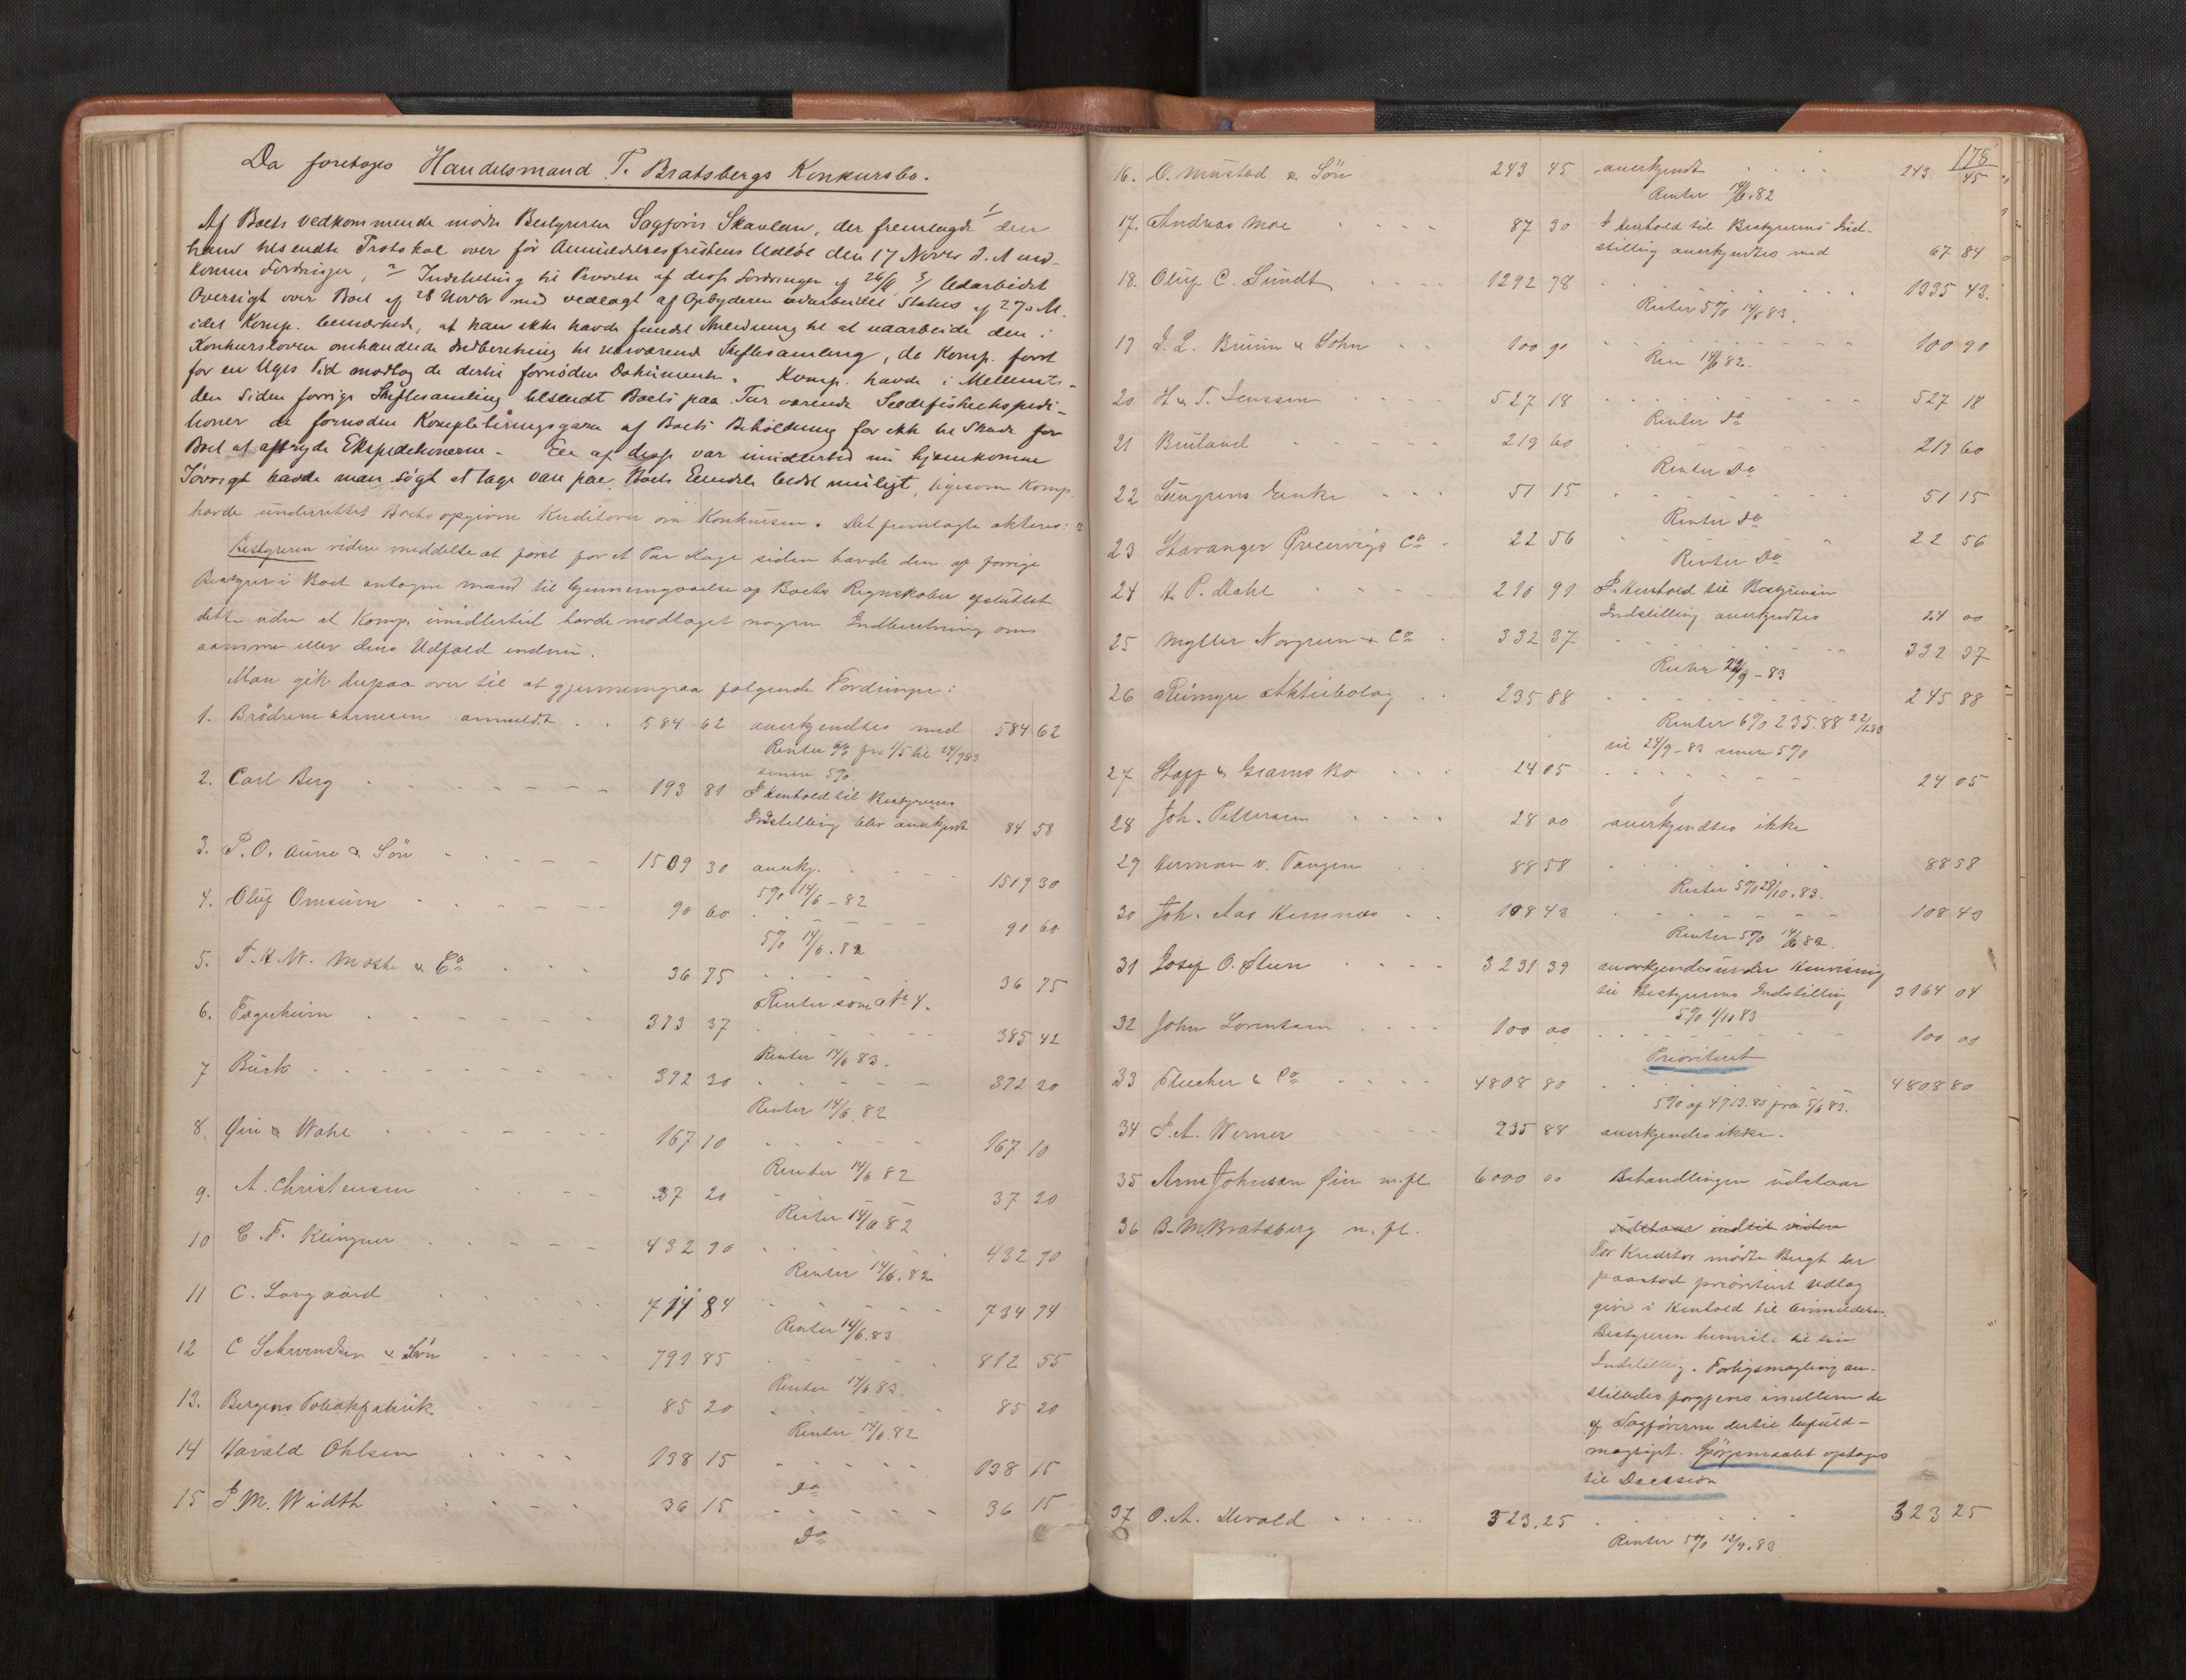 Da foretoges Handelsmand T. Bratsbergs Konkursbo.
Af Boets vedkommende mødte Bestyreren Sagfører Skavlan, der fremlagde 1/ den
ham tilsendte Protokol over før Anmeldelsesfristens Udløb den 17 Novbr d. A. ind-
komne Fordringer, 2/ Indstilling til Prøvelse af disse Fordringer af 26/11 3/ Udarbeidet
Oversigt over Boet af 28 Novbr med vedlagt af Opbyderen udarbeidet Status af 27 s. M.
idet Komp. bemærkede, at han ikke havde fundet Anledning til at udarbeide den i
Konkursloven omhandlede Indberetning til nærværende Skiftesamling, da Komp. først
for en Uges Tid modtog de dertil fornødne Dokumenter. Komp. havde i Mellemti-
den siden forrige Skiftesamling tilsendt Boets paa Tur værende Sildefiskeekspedi-
tioner de fornødne Kompletteringsgarn af Boets Beholdning for ikke til Skade for
Boet at afbryde Ekspeditionerne. En af disse var imidlertid nu hjemkommen
Iøvrigt havde man søgt at tage vare paa Boets Eiendele bedst muligt, ligesom Komp.
havde underrettet Boets opgivne Kreditorer om Konkursen. Det fremlagte akteres:
Bestyreren videre meddelte at først for et Par Dage siden havde den af forrige
Bestyrer i Boet antagne Mand til Gjennemgaaelse af Boets Regnskaber afsluttet
dette uden at Komp. imidlertid havde modtaget nogen Indberetning om
samme eller dens Udfald endnu.
Man gik derpaa over til at gjennemgaa følgende Fordringer:
1. Brødrene Arnesen anmeldt . . 584 62 anerkjendtes med 584 62
Renter 6% fra 1/5 til 24/9 83
senere 5%.
2. Carl Berg 193 81 I Henhold til Bestyrerens
Indstilling blev anerkjendt 84 58
3. P. O. Aune & Søn 1509 30 anerkj. 1509 30
5% 14/6 - 82
4. Oluf Omsum 90 60 90 60
5% 14/6. 82
5. T. H. W. & Co 36 75 36 75
Renter som No 4.
6. Fagerheim 373 37 385 42
Renter 14/6 83.
7 Buck 392 20 392 20
Renter 14/6 82
8. Øien & Wahl 167 10 167 10
Renter 14/6 82
9. A. Christensen 37 20 37 20
Renter 14/6 82
10 C. F. Klingner 432 90 432 90
Renter 14/6. 82
11 C. Langaard 714 84 734 94
Renter 14/6. 83
12 C Schwensen & Søn 791 85 812 55
Renter 14/6 83.
13. Bergens Tobakfabrik 85 20 85 20
Renter 14/6 82
14 Harald Ohlsen 138 15 138 15
Do
15 P. M. Width 36 15 36 15
Do
178
16. O. Mustad & Søn 243 45 anerkjendt 243 45
Renter 14/6. 82
17. Andreas Moe 87 30 I Henhold til Bestyrerens Ind-
stilling anerkjendtes med 67 84
18. Oluf C. Sundt 1292 78 1335 43.
Renter 5% 14/6 83.
19 J. L. Bruun & Sohn 100 90 100 90
Ren 14/6 82.
20 H & T. Jenssen 527 18 527 18
Renter Do
21 Buland 219 60 219 60
Renter Do
22 Lungrens Enke 51 15 51 15
Renter Do
23 Stavanger Co 22 56 22 56
Renter Do
24 H. P. Dahl 210 91 I Henhold til Bestyrerens
Indstilling anerkjendtes 24 00
25 Møller Norgren & Co 332 37 332 37
Renter 24/9 - 83
26 Reimyre Aktiebolag 235 88 245 88
Renter 6% 235.88 22/1 80
til 24/9 - 83 senere 5%
27 24 05 24 05
28 Joh. Pettersen 28 00 anerkjendtes ikke
29 Herman v. Tangen 88 58 88 58
Renter 5% 28/10. 83.
30 Joh. Aas Hemnæs 108 43 108 43
Renter 5% 14/6 82.
31 Josef O. Øien 3231 39 anerkjendes under Henvisning
til Bestyrerens Indstilling 3164 04
5% 1/11 83
32 John Lorentsen 100 00 100 00
Prioritet
33 Fluecher & Co 4808 80 4808 80
5% af 4713.80 fra 5/6 83.
34 J. A. Werner 235 88 anerkjendes ikke.
35 Arnt Johnsen Øien m. fl. 6000 00 Behandlingen udstaar
36 B. M. Bratsberg m. fl. udstaar indtil videre
For Kreditor mødte Bergh der
paastod prioriteret Udlæg
givet i Henhold til Anmeldelsen.
Bestyreren henviste til sin
Indstilling. Forligsmægling an-
stilledes forgjæves imellem de
af Sagførerne dertil befuld-
mægtiget. Spørgsmaalet optages
til Decission
37 O. A. Hevold 323.25 323 25
Renter 5% 12/9. 83